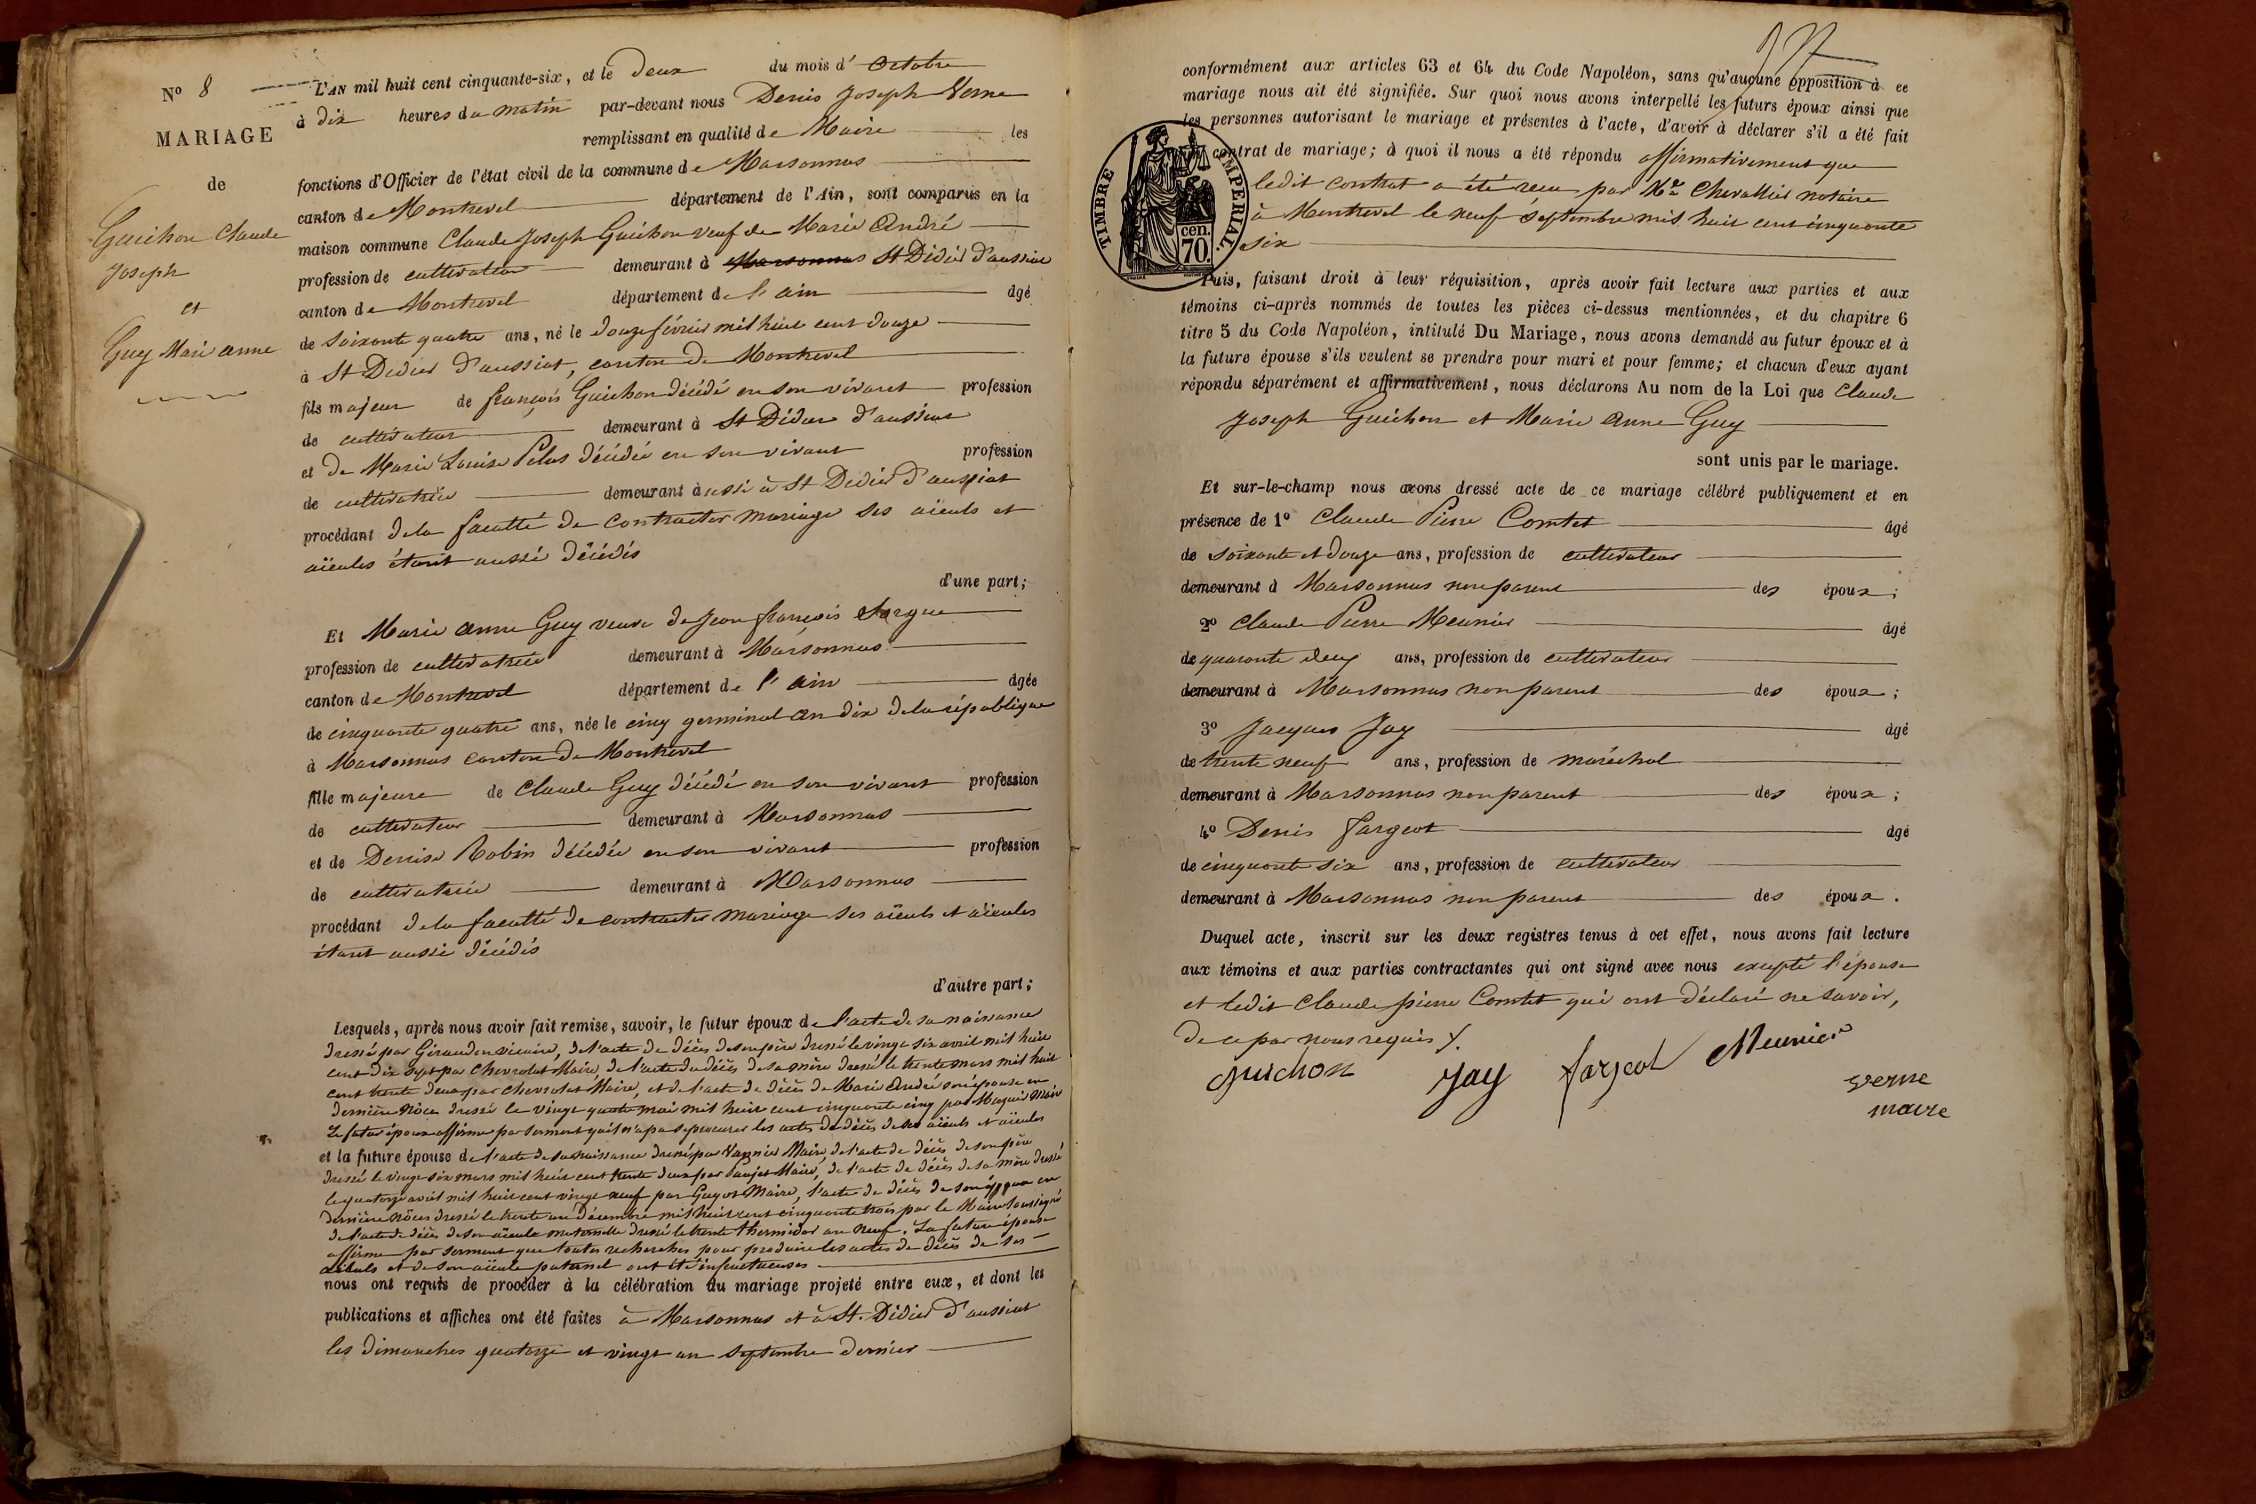 N° 8
MARIAGE
de
Guichon Claude
Joseph
et
Guy Marie anne
L'AN mil huit cent cinquante-six, et le deux du mois d' Octobre
à dix heures du matin par-devant nous Denis Joseph Verne
remplissant en qualité de Maire les
fonctions d'Officier de l'état civil de la commune de Marsonnas
canton de Montrevel département de l'Ain, sont comparus en la
maison commune Claude Joseph Guichon veuf de Marie André
profession de cultivateur demeurant à Marsonnas St Didier d'aussiat
canton de Montrevel département de l'ain âgé
de soixante quatre ans, né le douze février mil huit cent douze
à St Didier d'aussiat, canton de Montrevel
fils majeur de françois Guichon décédé en son vivant profession
de cultivateur demeurant à St Didier d'aussiat
et de Marie Louise Pelus décédée en son vivant profession
de cultivatrice demeurant aussi à St Didier d'aussiat
procédant de la faculté de contracter mariage ses aïeuls et
aïeules étant aussi décédés
d'une part;
Et Marie anne Guy veuve de Jean françois
profession de cultivatrice demeurant à Marsonnas
canton de Montrevel département de l'ain âgée
de cinquante quatre ans, née le cinq germinal an dix de la république
à Marsonnas canton de Montrevel
fille majeure de Claude Guy décédé en son vivant profession
de cultivateur demeurant à Marsonnas
et de Denise Robin décédée en son vivant profession
de cultivatrice demeurant à Marsonnas
procédant de la faculté de contracter mariage ses aïeuls et aïeules
étant aussi décédés
d'autre part;
Lesquels, après nous avoir fait remise, savoir, le futur époux de l'acte de sa naissance
dressé par Giraudon vicaire, de l'acte de décès de son père dressé le vingt six avril mil huit
cent dix sept par Chevrolat Maire, de l'acte de décès de sa mère dressé le trente mars mil huit
cent trente deux par Chevrolat Maire, et de l'acte de décès de Marie André son épouse en
dernière Nôces dressé le vingt quatre mai mil huit cent cinquante cinq par Maire
Le futur époux affirme par serment qu'il n'a pas se procurer les actes de décès de ses aïeuls et aïeules
et la future épouse de l'acte de sa naissance dressé par Vannier Maire, de l'acte de décès de son père
dressé le vingt six mars mil huit cent trente deux par Maire, de l'acte de décès de sa mère dressé
le quatorze avril mil huit cent vingt neuf par Guyot Maire, l'acte de décès de son époux en
dernière Nôces dressé le trente un décembre mil huit cent cinquante trois par le Maire soussigné
de l'acte de décès de son aïeule maternelle dressé le trente thermidor an neuf. La future épouse
affirme par serment que toutes recherches pour produire les actes de décès de ses
aïeuls et de son aïeule paternel ont été infructueuses
nous ont requis de procéder à la célébration du mariage projeté entre eux, et dont les
publications et affiches ont été faites à Marsonnas et à St. Didier d'aussiat
les dimanches quatorze et vingt un septembre dernier
conformément aux articles 63 et 64 du Code Napoléon, sans qu'aucune opposition à ce
mariage nous ait été signifiée. Sur quoi nous avons interpellé les futurs époux ainsi que
les personnes autorisant le mariage et présentes à l'acte, d'avoir à déclarer s'il a été fait
contrat de mariage; à quoi il nous a été répondu affirmativement que
ledit contrat a été reçu par Me Chevallier notaire
à Montrevel le neuf septembre mil huit cent cinquante
six
TIMBRE IMPERIAL.
cen.
70.
Puis, faisant droit à leur réquisition, après avoir fait lecture aux parties et aux
témoins ci-après nommés de toutes les pièces ci-dessus mentionnées, et du chapitre 6
titre 5 du Code Napoléon, intitulé Du Mariage, nous avons demandé au futur époux et à
la future épouse s'ils veulent se prendre pour mari et pour femme; et chacun d'eux ayant
répondu séparément et affirmativement, nous déclarons Au nom de la Loi que Claude
Joseph Guichon et Marie Anne Guy
sont unis par le mariage.
Et sur-le-champ nous avons dressé acte de ce mariage célébré publiquement et en
présence de 1° Claude Pierre Comtet âgé
de soixante et douze ans, profession de cultivateur
demeurant à Marsonnas non parent des époux;
2° Claude Pierre Meunier âgé
de quarante deux ans, profession de cultivateur
demeurant à Marsonnas non parent des époux;
3° Jacques Jay âgé
de trente neuf ans, profession de maréchal
demeurant à Marsonnas non parent des époux;
4° Denis Fargeot âgé
de cinquante six ans, profession de cultivateur
demeurant à Marsonnas non parent des époux.
Duquel acte, inscrit sur les deux registres tenus à cet effet, nous avons fait lecture
aux témoins et aux parties contractantes qui ont signé avec nous excepté l'épouse
et ledit Claude pierre Comtet qui ont déclaré ne savoir,
de ce par nous requis
guichon Jay fargeot Meunier
Verne
maire